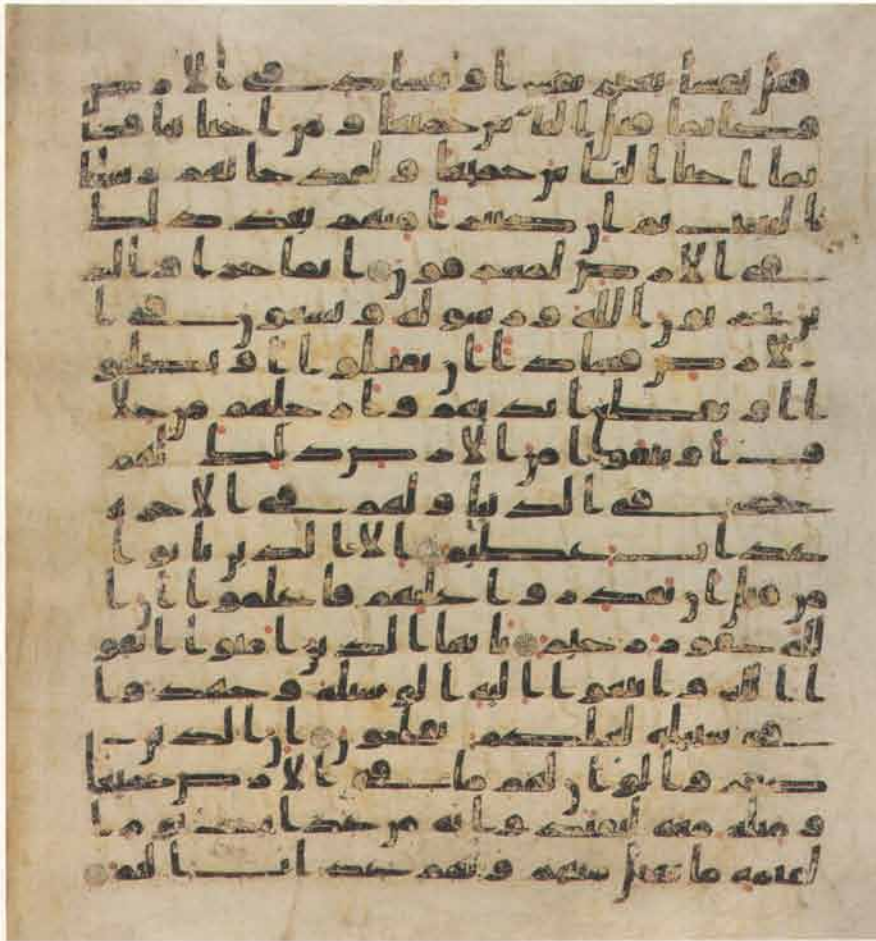 قتل نفسا بغير نفس او فساد في الارض
فكانما قتل الناس جميعا ومن احياها فكا
نما احيا الناس جميعا ولقد جاتهم رسلنا
بالبينت ثم ان كثيرا منهم بعد ذلك
في الارض لمسرفون انما جزاوا الذ
ين يحربون الله ورسوله ويسعون في ا
لارض فسادا ان يقتلوا او يصلبو
ا او تقطع ايديهم وارجلهم من خلا
ف او ينفوا من الارض ذلك لهم
خزي في الدنيا ولهم في الاخرة
عذاب عظيم الا الذين تابوا
من قبل ان تقدروا عليهم فاعلموا ان ا
لله غفور رحيم يايها الذين امنوا اتقو
ا الله وابتغوا اليه الوسيلة وجهدوا
في سبيله لعلكم تفلحون ان الذين
كفروا لو ان لهم ما في الارض جميعا
ومثله معه ليفتدوا به من عذاب يوم ا
لقيمة ما تقبل منهم ولهم عذاب اليم